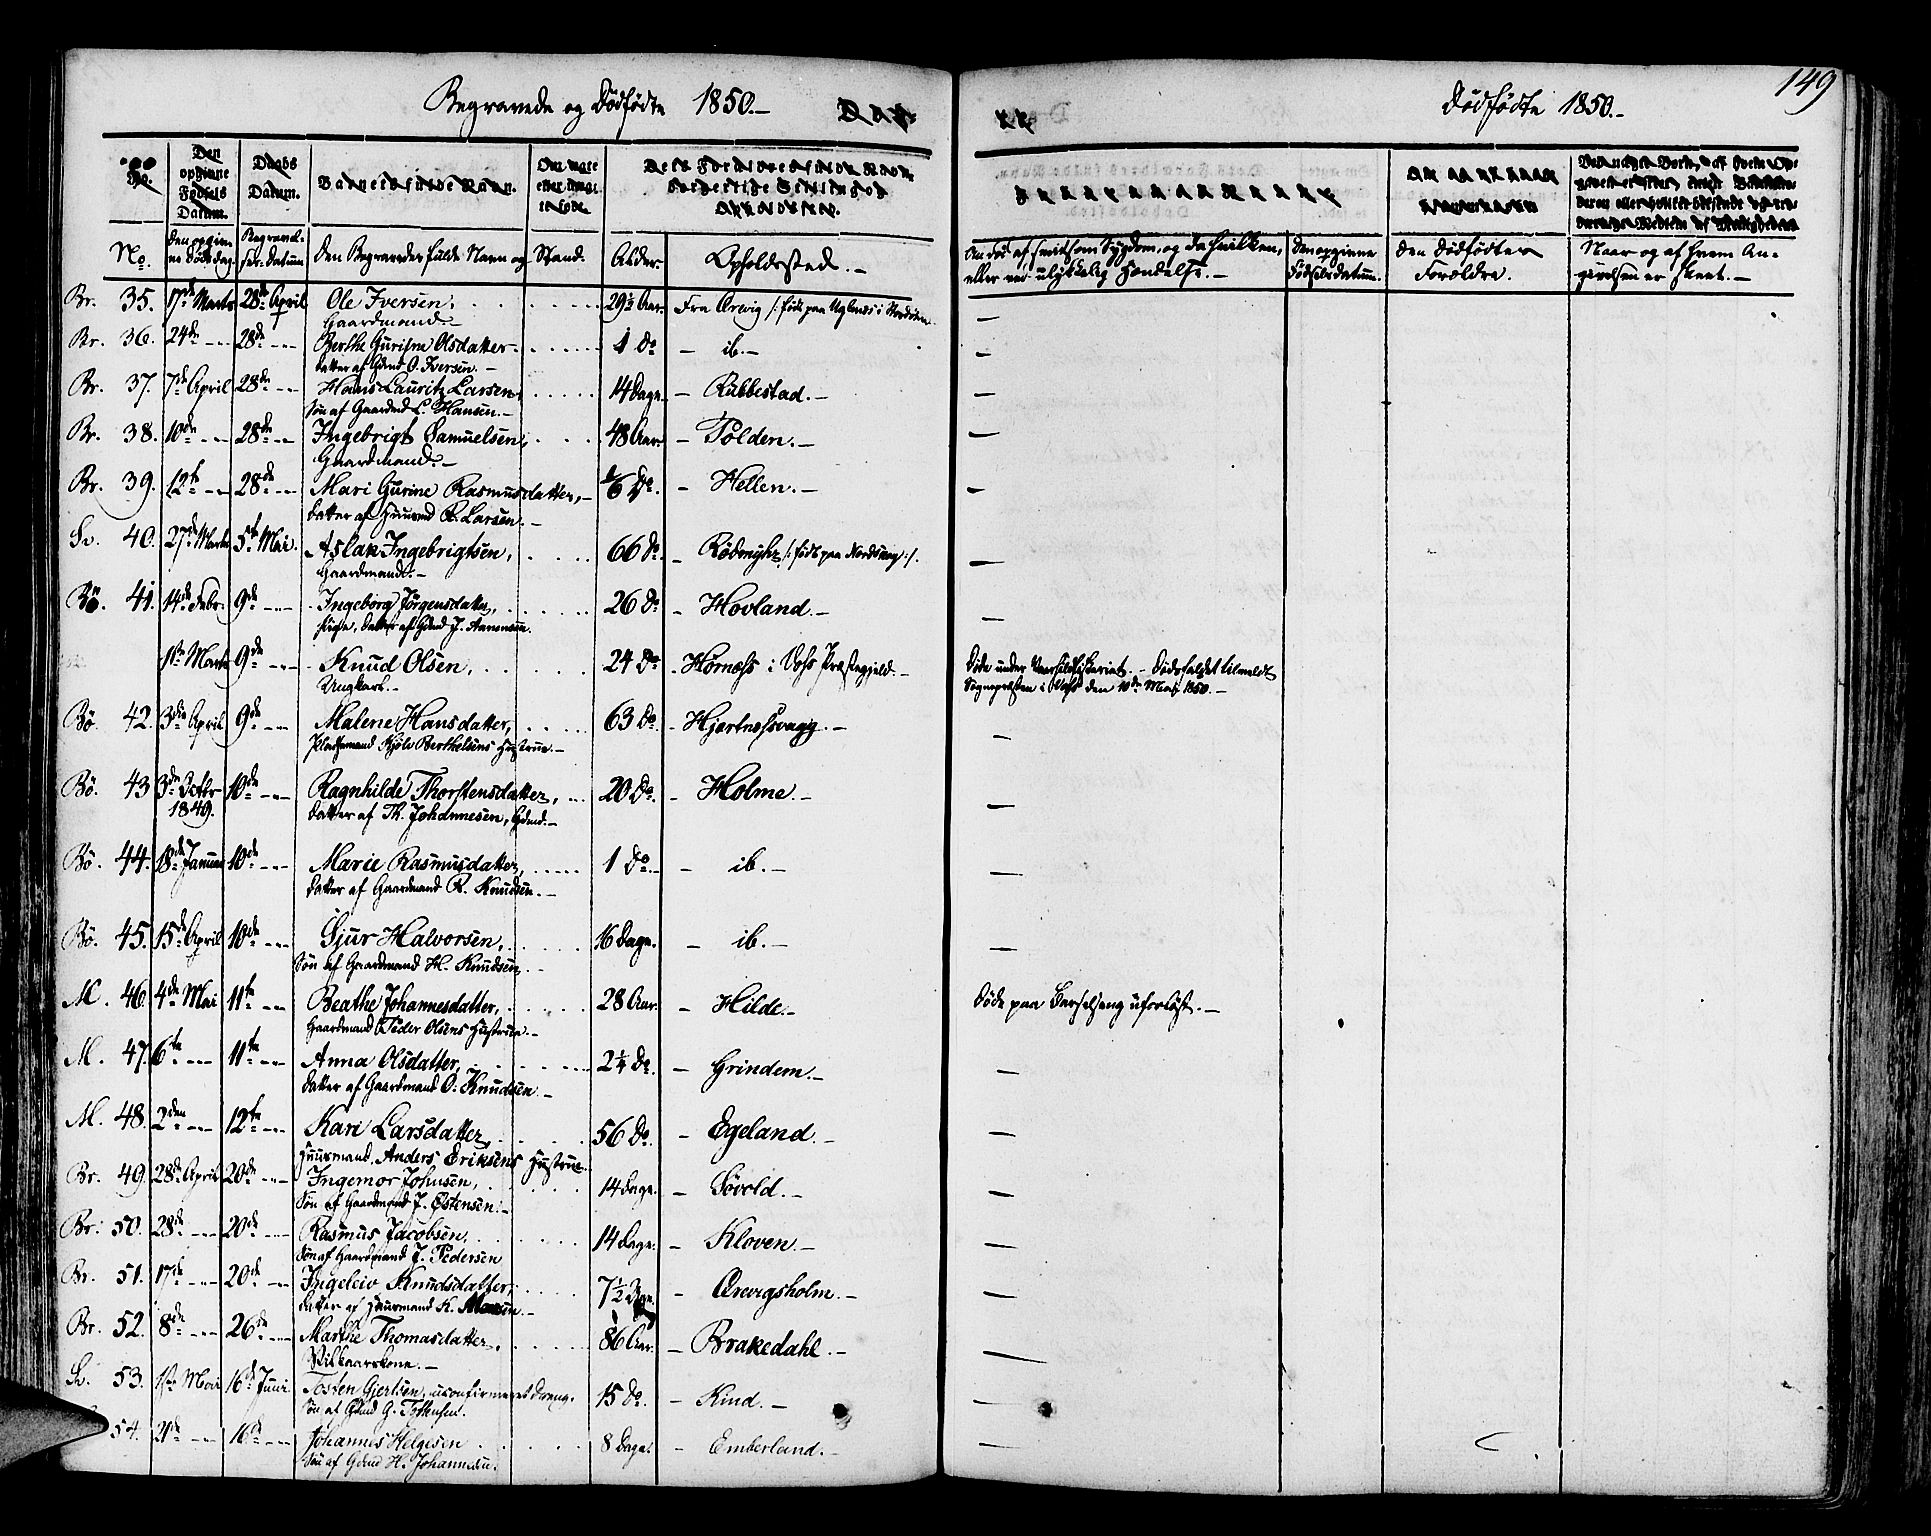 149
Begravede og Dødfødte 1850.-
Dødfødte 1850.-
Den opgivne Fødsels Datum.
Daabs Datum.
Barnets fulde Navn.
No.
Den opgivne Dødsdag
Begravelses-Datum
Den Begravedes fulde Navn og Stand.
Alder.
Opholdssted.-
Om død af smitsom Sygdom, og da hvilken,
eller ved ulykkelig Hændelse.-
Den opgivne
Fødselsdatum.
Den Dødfødtes
Forældre.
Naar og af hvem An-
givelsen er skeet.-
Br. 35. 17de Marts 28de April Ole Iversen, 29½ Aar. Fra Ørevig /: født paa
Gaardmand.-
Br. 36. 24de - 28de - Berthe Gurine Olsdatter 1 Do - ib.-
Datter af Gdmd O. Iversen.-
Br. 37. 7de April 28de - Hans Lauritz Larsen, 14 Dage - Rubbestad.-
Søn af Gaardmd L. Hansen.-
Br. 38. 10de - 28de - Ingebrigt Samuelsen, 48 Aar. - Tolden.-
Gaardmand.-
Br. 39. 12te - 28de - Mari Gurine Rasmusdatter,- 1/6 Do. - Hellen.-
Datter af Huusmd R. Larsen.-
Sv. 40. 27de Marts 5te Mai. Aslak Ingebrigtsen, 66 Do - Rødmyhr /: født paa Nordskog :/.
Gaardmand.-
Bö. 41. 14de Febr. 9de - Ingeborg Jørgensdatter, 26 Do - Hovland.-
Pige, Datter af Gdmd J. Aamensen.
1ste Marts 9de - Knud Olsen, 24 Do - Hornæss i Voss Præstegjeld.- Døde under Dødsfaldet tilmeldt
Ungkarl.- Sognepræsten i Voss den 10de Marts 1850.-
Bö. 42. 3die April 9de Malene Hansdatter, 63 Do - Hjertnessvaag.-
Pladsemand Kjøln Berthelsens Hustrue.-
Bö. 43 3die Octbr 10de - Ragnhilde Thorstensdatter, 20 Do. - Holme.-
1849. Datter af Th. Johannesen, Gdmd.-
Bö. 44. 18de Januar 10de - Marie Rasmusdatter, 1 Do. - ib.-
Datter af Gaardmand R. Knudsen.-
Bö. 45. 15de April 10de - Sjur Halvorsen, 16 Dage. - ib.-
Søn af Gaardmand H. Knudsen.-
M. 46 4de Mai 11te - Beathe Johannesdatter, 28 Aar. - Hilde.- Døde paa Barselseng uforløst.-
Gaardmand Peder Olsens Hustrue.-
M. 47. 6te - 11te - Anna Olsdatter, 2¼ Do. - Grindem.-
Datter af Gaardmand O. Knudsen.-
M. 48. 2den - 12te - Kari Larsdatter, 56 Do. - Egeland.-
Huusmand Anders Eriksens Hustrue.
Br. 49. 28de April 20de - Ingemor Johnsen, 14 Dage. - Søvold.-
Søn af Gaardmand J. Østensen.-
Br. 50. 28de - 20de - Rasmus Jacobsen. 14 Dage. - Kloven.-
Søn af Gaardmand J. Pedersen
Br. 51. 17de - 20de - Ingeleiv Knudsdatter, 7½ - Ørevigsholm.-
Datter af Huusmand K. Monsen.-
Br. 52. 8de - 26de - Marthe Thomasdatter. 86 Aar. - Brakedahl.-
Vilkaarskone.-
Sv. 53. 1ste Mai 16de Juni Tosten Gjertsen, uconfirmeret Dreng. 15 Do. - Kind.-
Søn af Gdmd G. Tostensen.
54. 21de - 16de - Johannes Helgesen 8 Dage. - Emberland.-
Søn af Gdmd H. Johannesen.